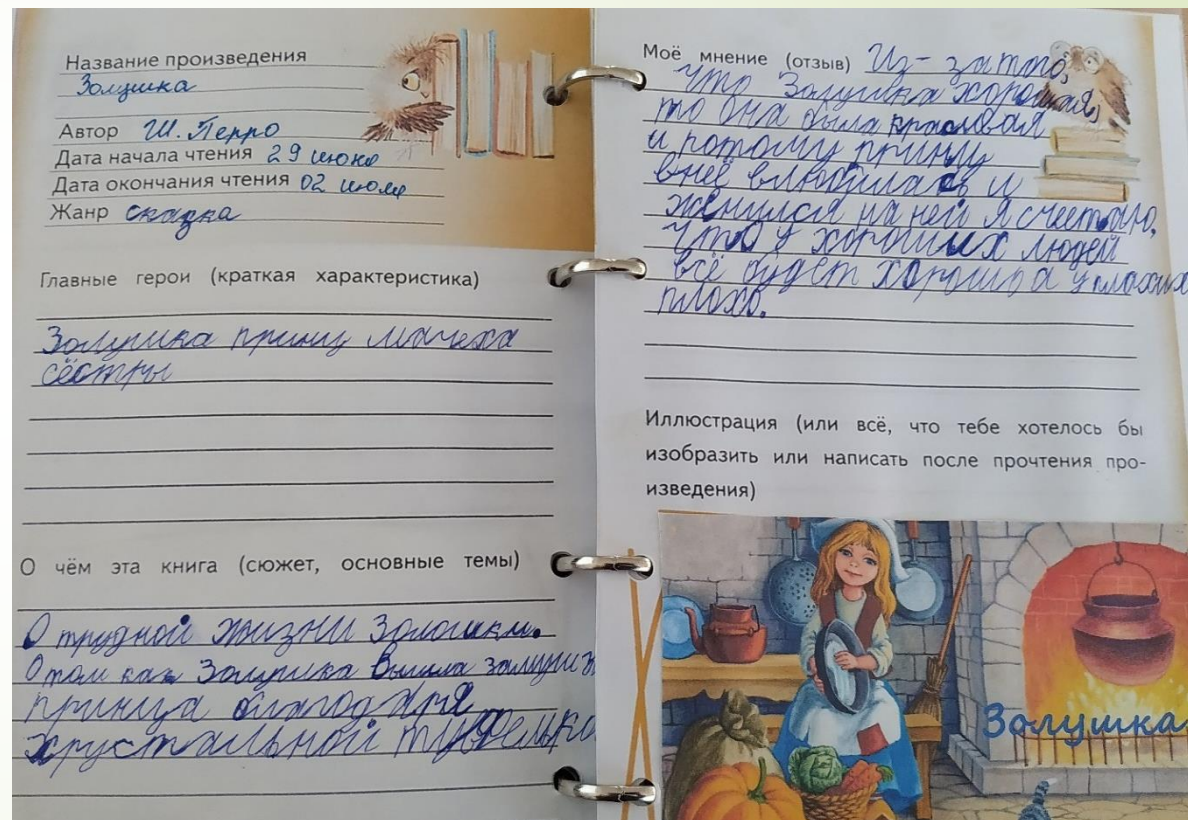 Название произведения
Золушка
Автор Ш. Перро
Дата начала чтения 29 июня
Дата окончания чтения 02 июля
Жанр сказка
Главные герои (краткая характеристика)
Золушка принц мачеха
сёстры
О чём эта книга (сюжет, основные темы)
О трудной жизни Золошки.
О том как Золушка вышла замуж з
принца благодаря
хрустальной туфельке
Моё мнение (отзыв) Из-затто,
что Золушка хорошая,
то она была красивая
и потому принц
в неё влюбилась и
женился на ней я счетаю,
что у хороших людей
всё будет хорошо а у плохих
плохо.
Иллюстрация (или всё, что тебе хотелось бы
изобразить или написать после прочтения про-
изведения)
Золушка